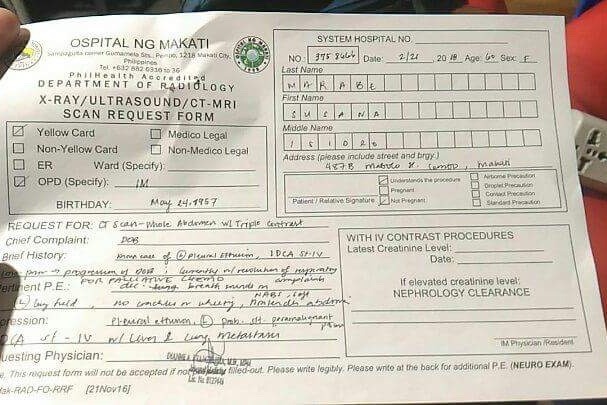 OSPITAL NG MAKATI
Sampaguita corner Gumamela Sts., Pembo, 1218 Makati City,
Philippines
Tel. +632 882 6316 to 36
PhilHealth Accredited
DEPARTMENT OF RADIOLOGY
X-RAY/ULTRASOUND/CT-MRI
SCAN REQUEST FORM
Yellow Card
Medico Legal
Non-Yellow Card
Non-Medico Legal
ER
Ward (Specify):
OPD (Specify): IM
BIRTHDAY: May 24, 1957
SYSTEM HOSPITAL NO.
NO.: Date: 2/21 2018 Age: 60 Sex: F
Last Name
MARABE
First Name
SUSANA
Middle Name
ISIDRO
Address (please include street and brgy.)
487B Makati
Patient / Relative Signature
Understands the procedure
Pregnant
Not Pregnant
Airborne Precaution
Droplet Precaution
Contact Precaution
Standard Precaution
REQUEST FOR: CT Scan - Whole Abdomen w/ Triple Contrast
Chief Complaint: DOB
Brief History: Known case of pleural effusion, IDCA St-IV
progression of DOB; currently w/ resolution of respiratory
FOR PALLIATIVE CHEMO complaints
rtinent P.E.: dec breath sounds
(L) lung field, no crackles or wheeze,
pression: Pleural effusion, (L) prob. paramalignant
st - IV w/ Liver & Lung metastasis
uesting Physician:
WITH IV CONTRAST PROCEDURES
Latest Creatinine Level:
Date:
If elevated creatinine level:
NEPHROLOGY CLEARANCE
IM Physician /Resident
e. This request form will not be accepted if not filled-out. Please write legibly. Please write at the back for additional P.E. (NEURO EXAM).
Mak-RAD-FO-RRF [21Nov16]